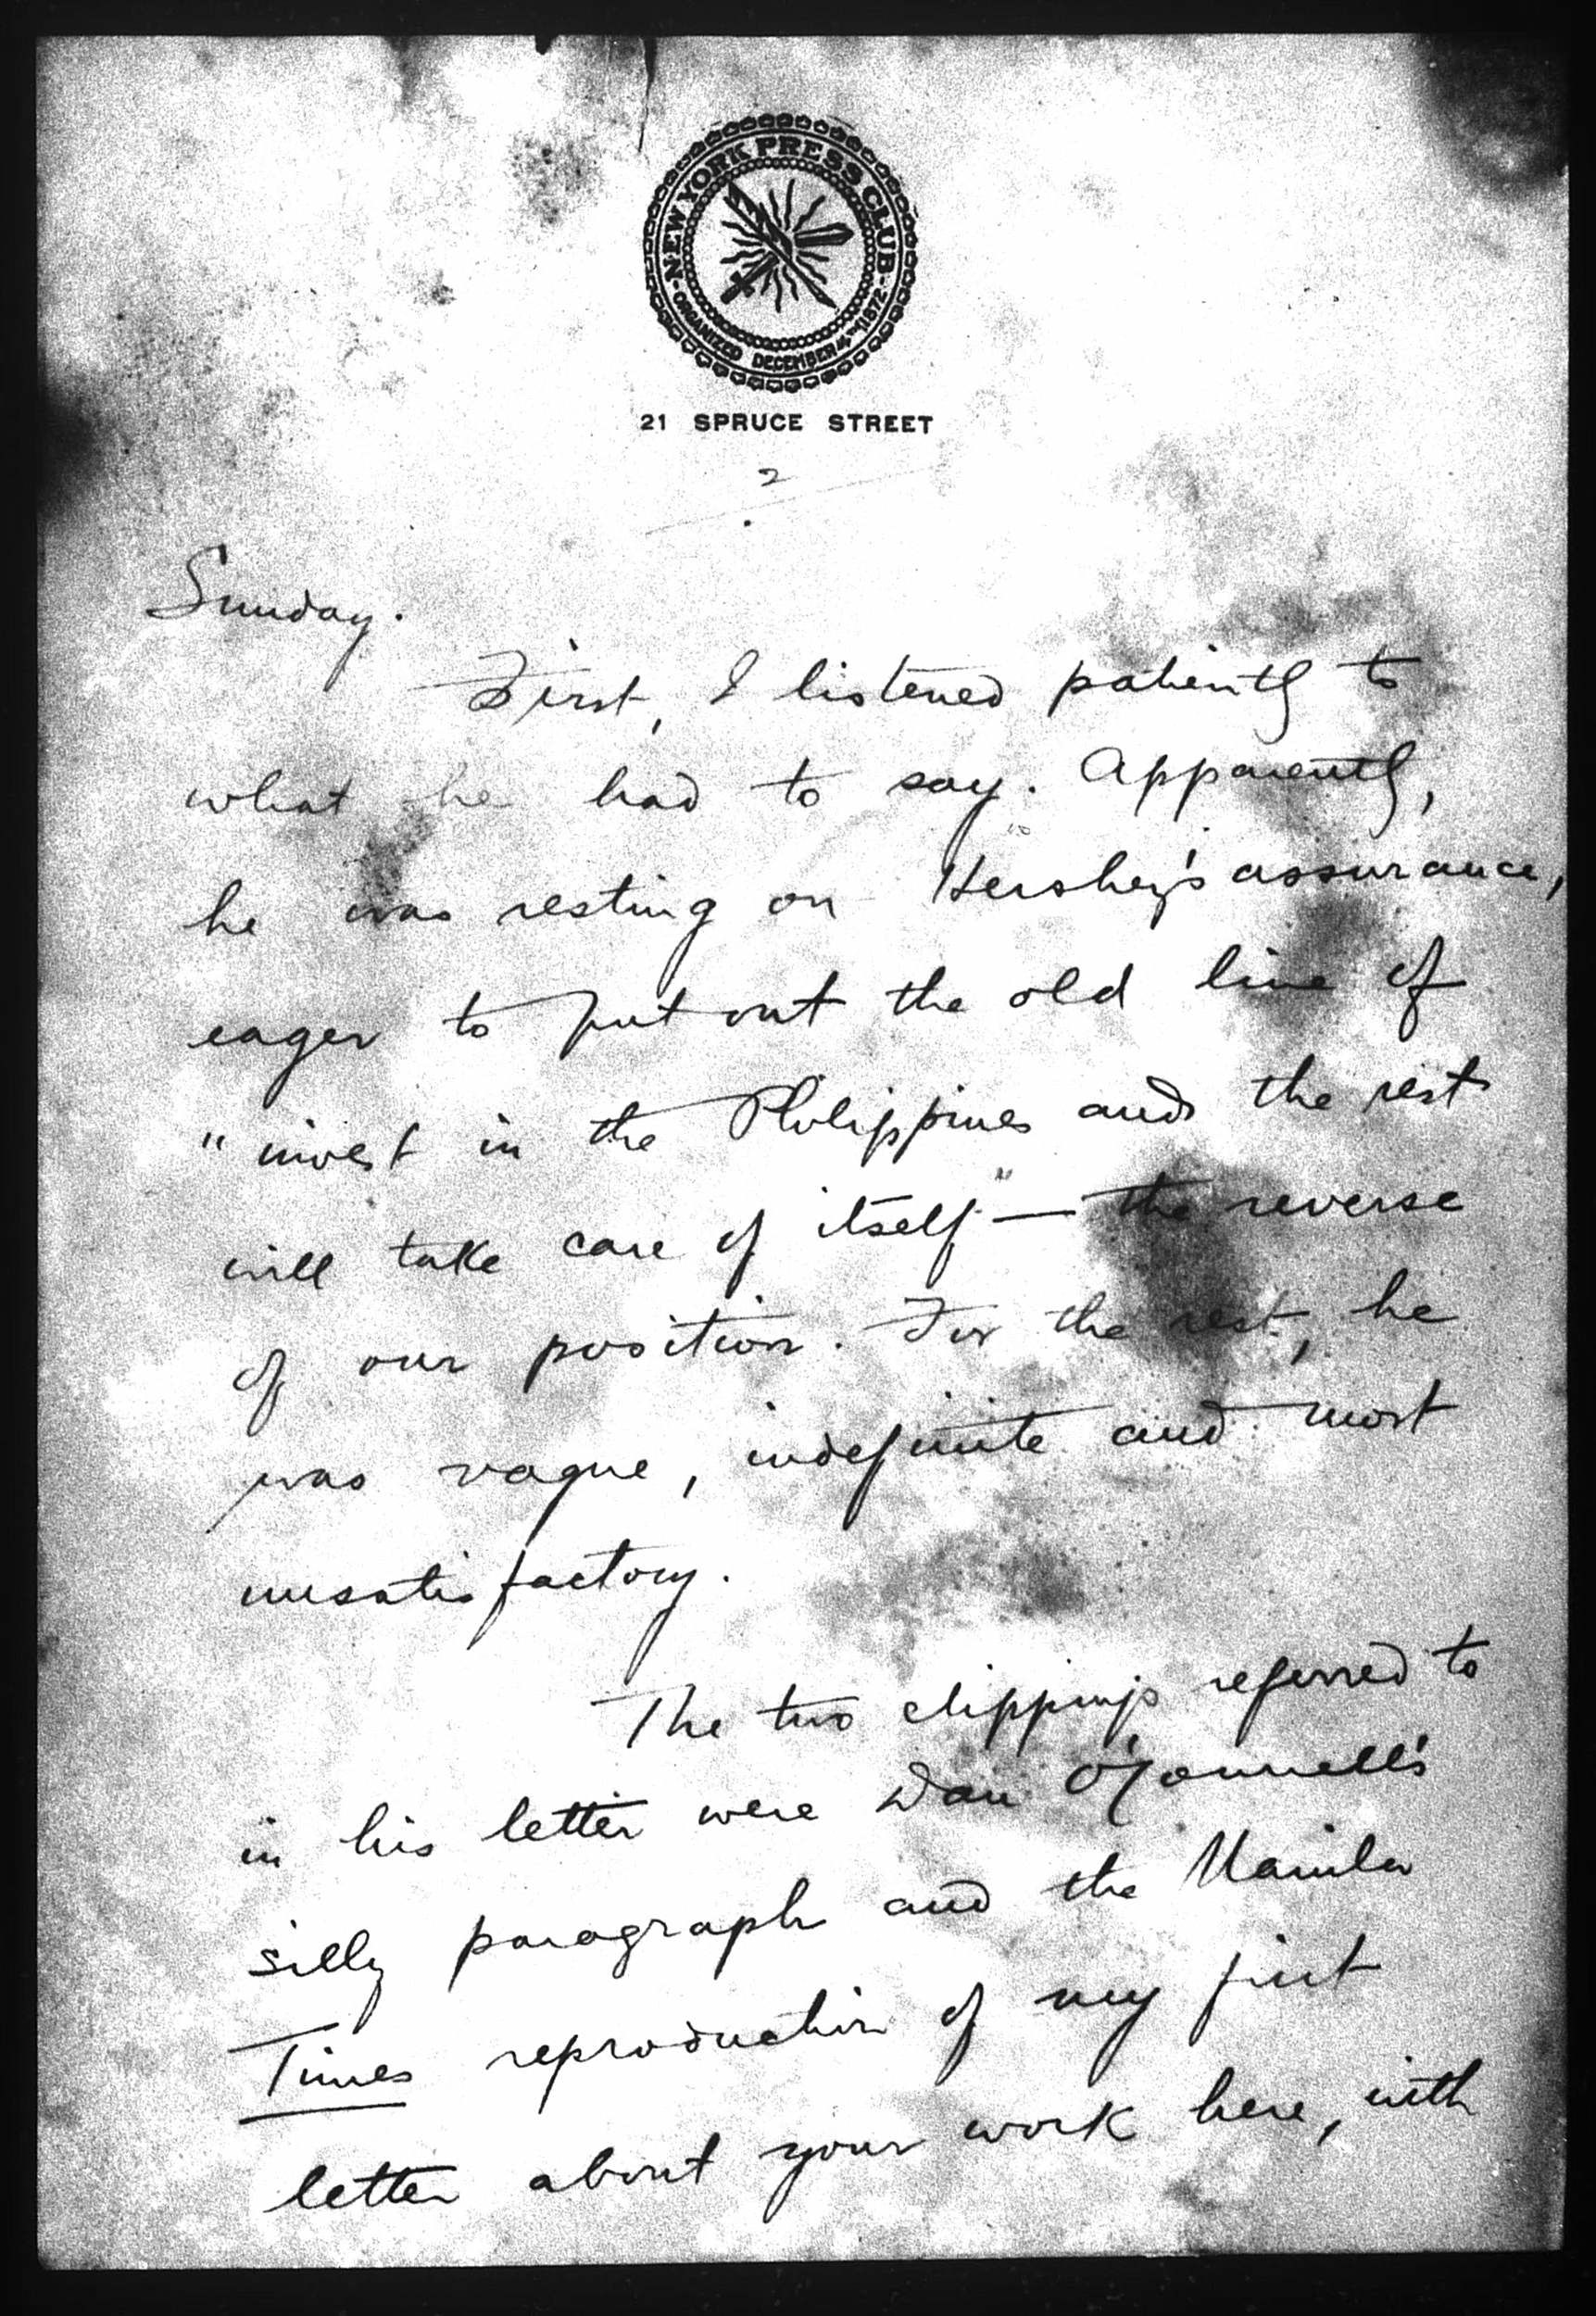 NEW YORK PRESS CLUB
ORGANIZED DECEMBER 4TH 1872
21 SPRUCE STREET
2
Sunday.
First, I listened patiently to
what he had to say. Apparently,
he was resting on Hershey's assurance,
eager to put out the old line of
"invest in the Philippines and the rest
will take care of itself" — the reverse
of our position. For the rest, he
was vague, indefinite and most
unsatisfactory.
The two clippings referred to
in his letter were Dan O'Connell's
silly paragraph and the Manila
Times reproduction of my first
letter about your work here, with